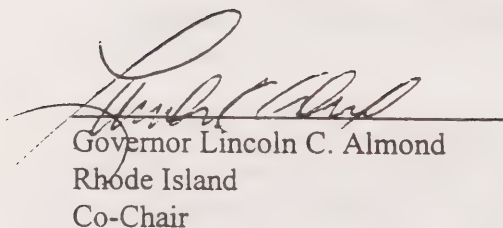 Governor Lincoln C. Almond
Rhode Island
Co-Chair